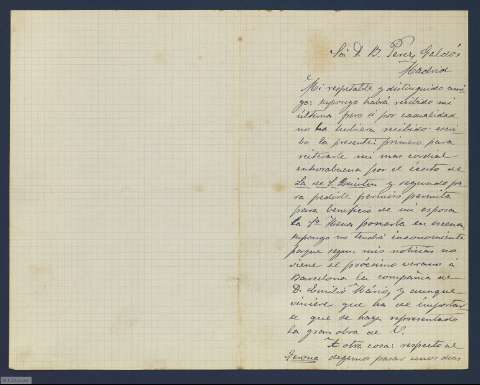 Sr. D. B. Pérez Galdós
Madrid
Mi respetable y distinguido ami
go: supongo habrá recibido mi
última pero si por casualidad
no la hubiera recibido escri
bo la presente: primero para
reiterarle mi mas cordial
enhorabuena por el éxito de
La de S. Quintin y segundo pa
ra pedirle permiso permita
para beneficio de mi esposa
la Sra. ponerla en escena
supongo no tendrá inconveniente
porque segun mis noticias no
viene el próximo verano á
Barcelona la compañia de
D. Emilio Mário, y aunque
viniese que ha de importar
le que se haya representado
la gran obra de V.
A otra cosa: respecto al
Gerona dejemos pasar unos dias